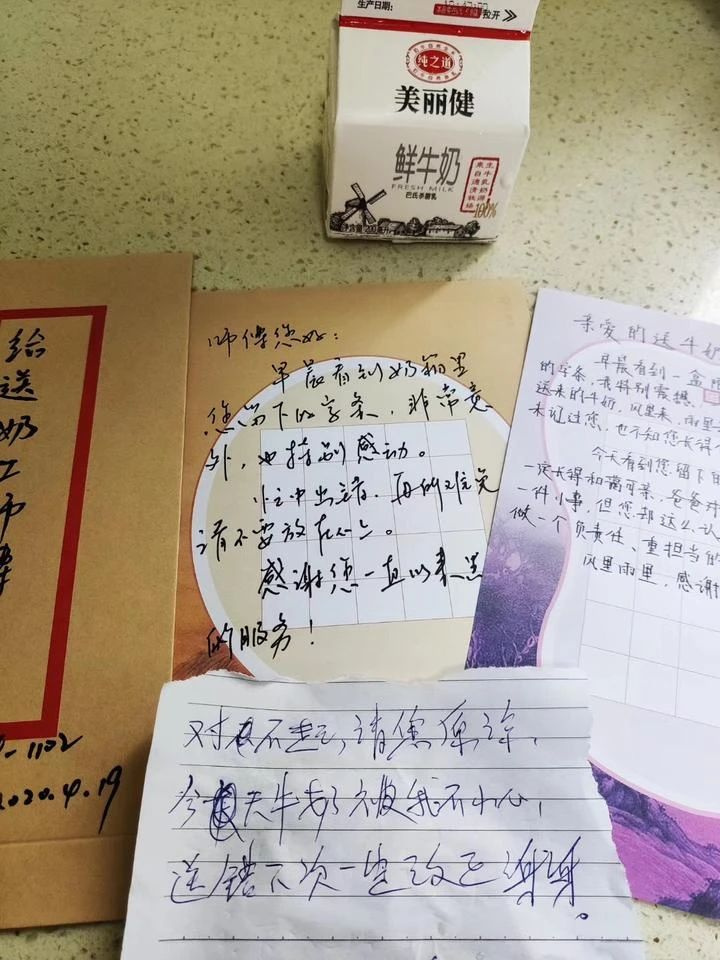 生产日期:
拉开
纯之道
美丽健
鲜牛奶
FRESH MILK
巴氏杀菌乳
100%
净含量 200毫升
给
送
奶
工
师
傅
-1102
2020.4.19
师傅您好:
早晨看到奶箱里
您留下的字条,非常意
外,也特别感动。
忙中出错,再所难免
请不要放在心上。
感谢您一直以来
的服务!
亲爱的送牛奶
早晨看到一盒
的字条,我特别震撼。
送来的牛奶,风里来,雨里
未见过您,也不知您长得
今天看到您留下
一定长得和蔼可亲,爸爸
一件小事,但您却这么认
做一个负责任、重担当的
风里雨里,感谢
对不起,请您原谅,
今天牛奶被我不小心,
送错下次一定改正谢谢。